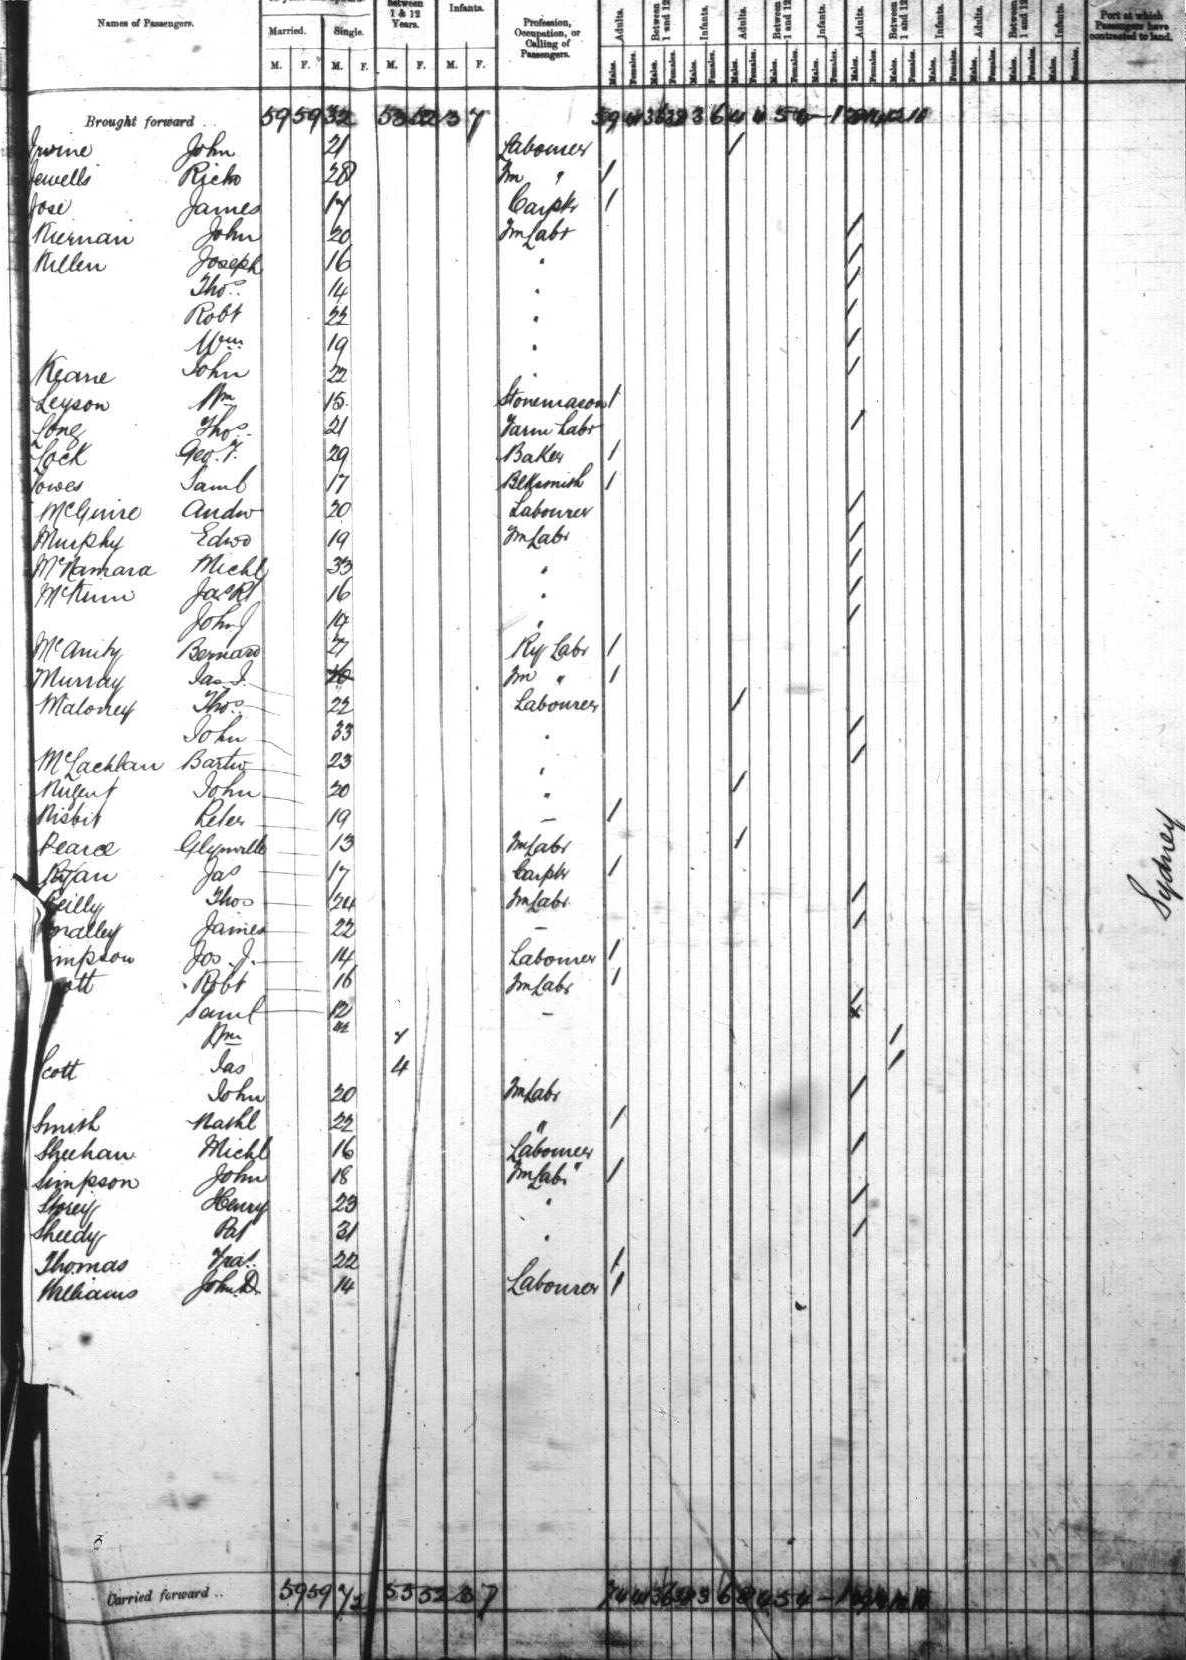 Names of Passengers. Married. Single. Between 1 & 12 Years. Infants. Profession, Occupation, or Calling of Passengers. Adults. Between 1 and 12 Infants. Adults. Between 1 and 12 Infants. Adults. Between 1 and 12 Infants. Adults. Between 1 and 12 Infants. Port at which Passengers have contracted to land.
M. F. M. F. M. F. M. F. Males. Females. Males. Females. Males. Females. Males. Females. Males. Females. Males. Females. Males. Females. Males. Females. Males. Females. Males. Females. Males. Females. Males. Females.
Brought forward .. 59 59 32 53 52 3 7
Irvine John 21 Labourer /
Jewells Richd 28 Fm " /
Jose James 17 Carptr /
Kiernan John 20 Fm Labr /
Killen Joseph 16 " /
Thos. 14 " /
Robt 22 " /
Wm 19 " /
Keane John 22 " /
Leyson Wm 15 Stonemason /
Long Thos. 21 Farm Labr /
Lock Geo. F. 29 Baker /
Lowes Saml 17 Blksmith /
McGuire Andw 20 Labourer /
Murphy Edwd 19 Fm Labr /
McNamara Michl 33 " /
16 " /
John J 14 " /
Bernard 27 Ry Labr /
Murray Jas. J. Fm " /
Maloney Thos. 22 Labourer /
John 33 " /
McLachlan Bartw 23 " /
Nugent John 20 " /
Nisbit Peter 19 /
Pearce Glynville 13 Fm Labr /
Ryan Jas 17 Carptr /
Reilly Thos 24 Fm Labr /
James 22 /
impson Jos. J. 14 Labourer /
ott Robt 16 Fm Labr /
Saml 12
Wm /
Scott Jas 4 /
John 20 Fm Labr /
Smith Nathl 22 " /
Sheehan Michl 16 Labourer /
Simpson John 18 Fm Labr /
Storey Henry 23 " /
Sheedy Pat 31 " /
Thomas Fras. 22 /
Williams John D. 14 Labourer /
Sydney
Carried forward .. 59 59 53 52 3 7